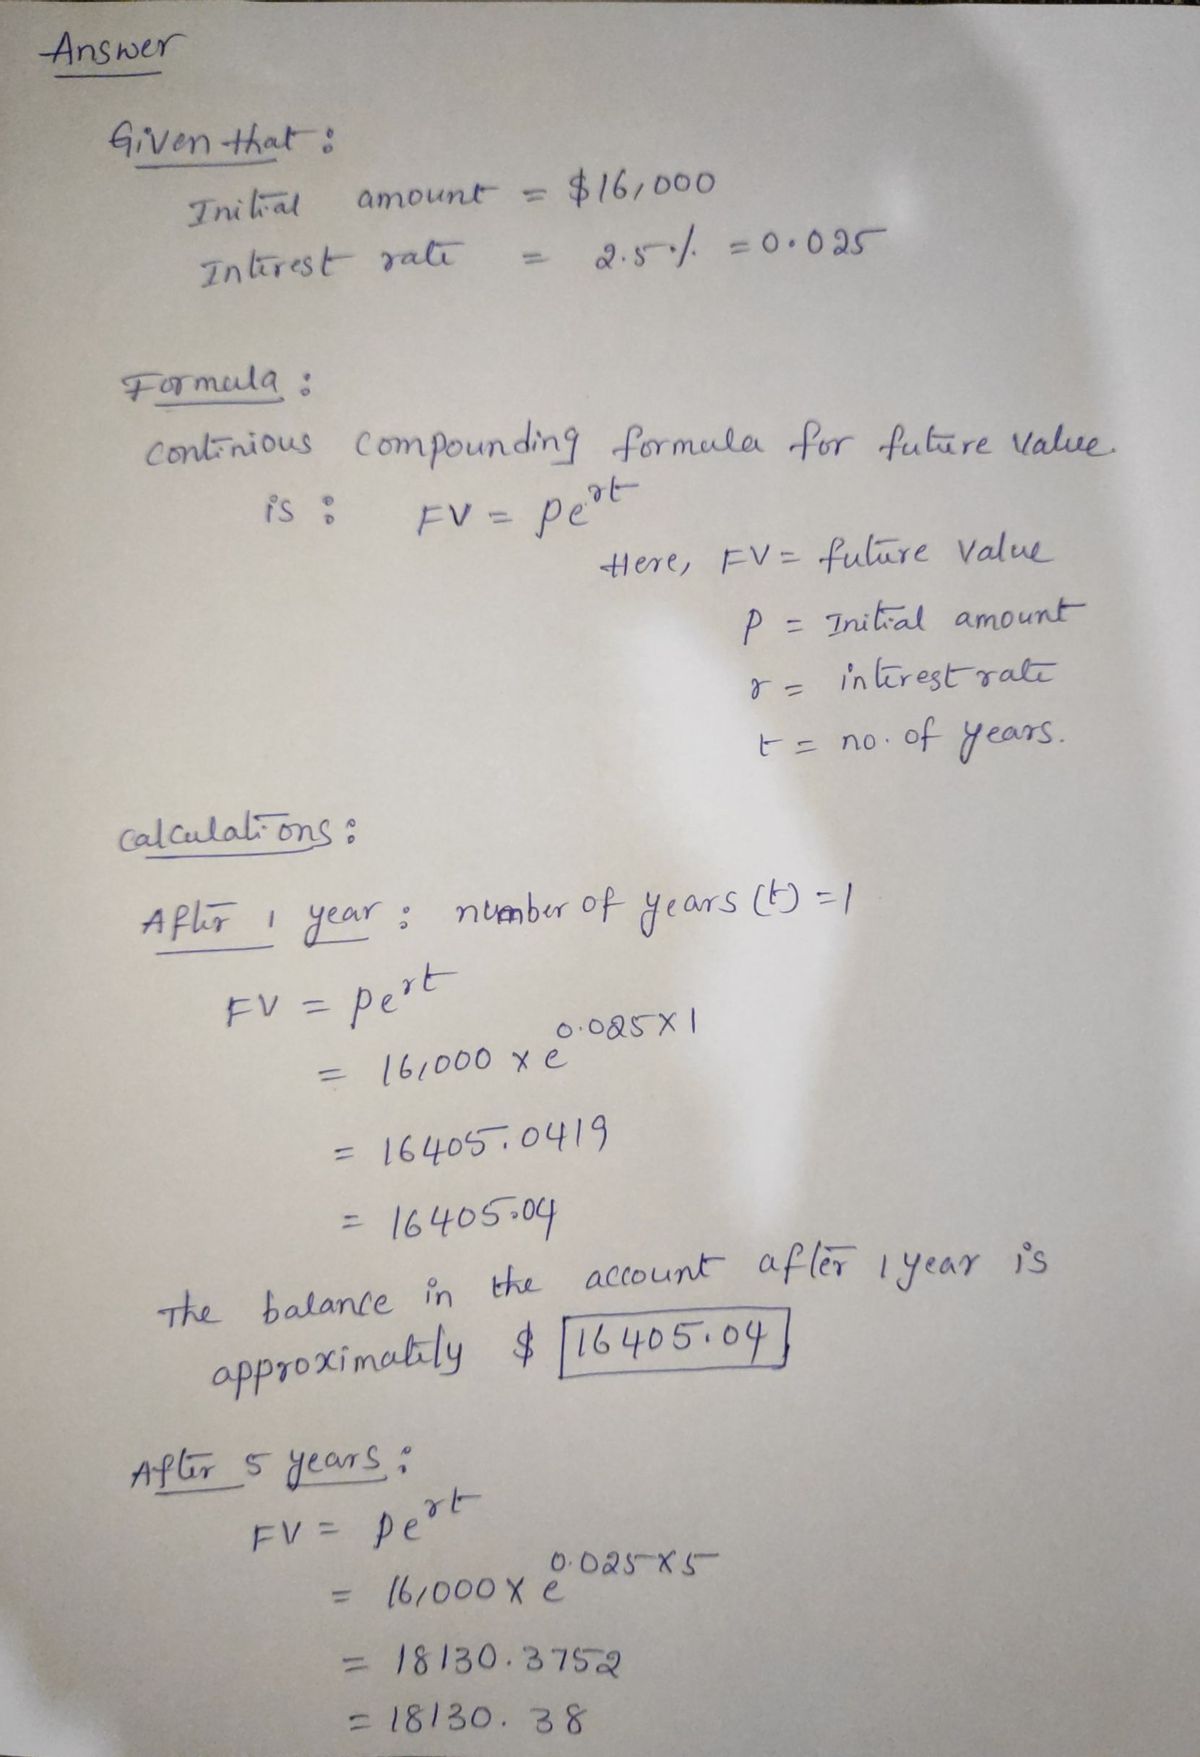 Answer
Given that :
Initial amount = $16,000
Interest rate = 2.5% = 0.025
Formula :
continious compounding formula for future value.
is : FV = pe^rt
Here, FV = future value
P = Initial amount
r = interest rate
t = no. of years.
calculations :
After 1 year : number of years (t) = 1
FV = pe^rt
= 16,000 x e^0.025x1
= 16405.0419
= 16405.04
The balance in the account after 1 year is
approximately $ 16405.04
After 5 years :
FV = pe^rt
= 16,000 x e^0.025x5
= 18130.3752
= 18130.38